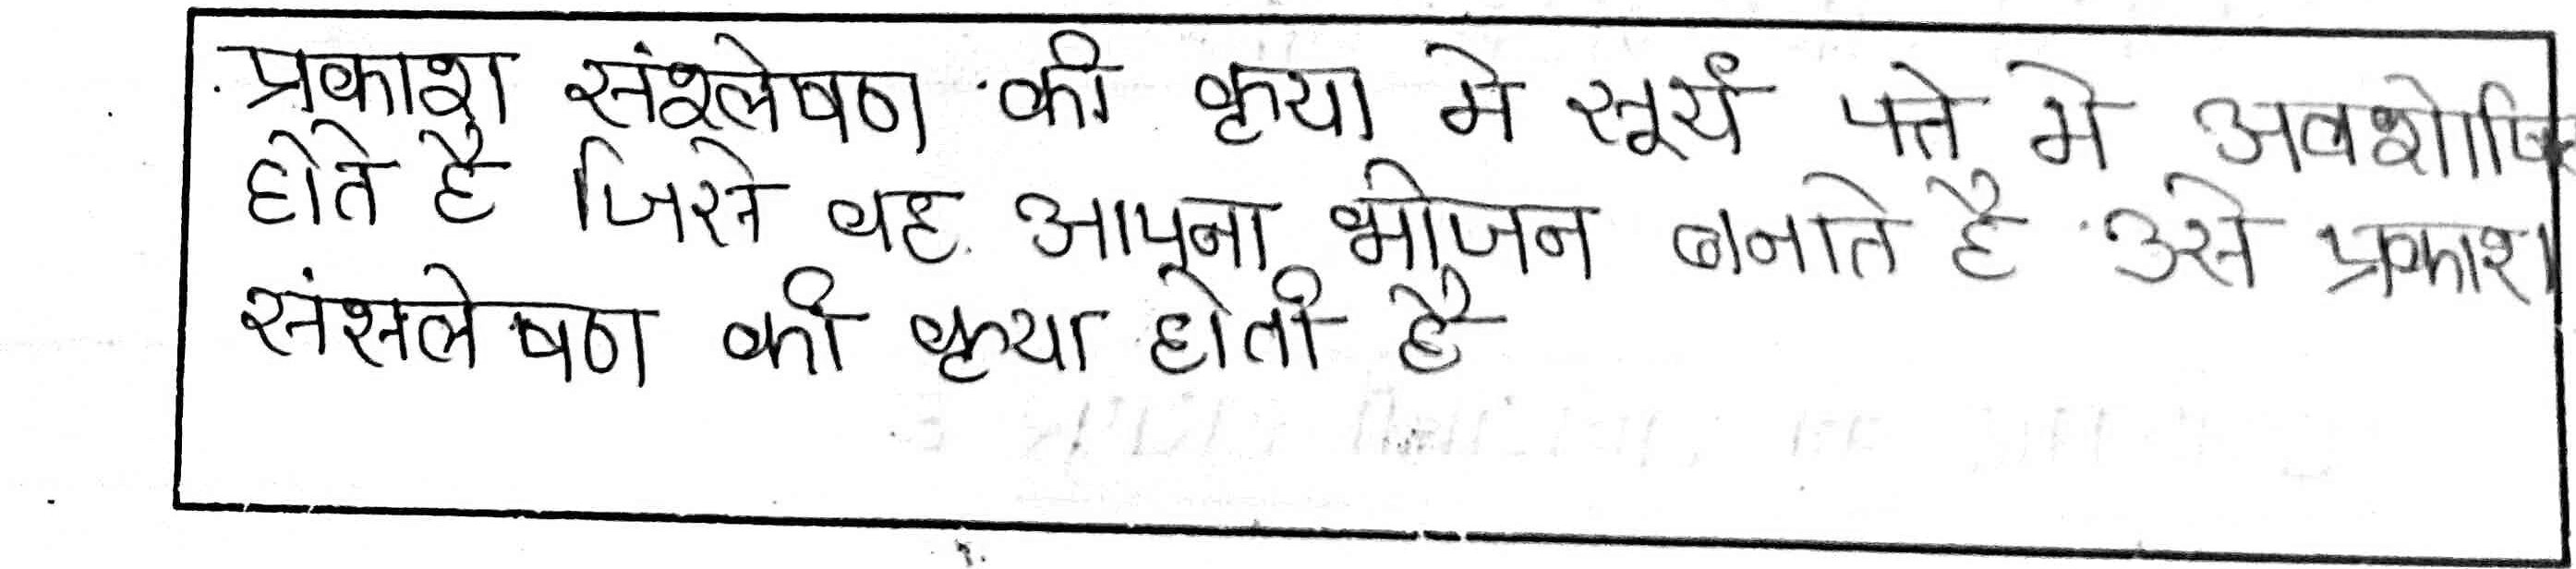 प्रकाश संश्लेषण की कृया मे सूर्य पत्ते मे अवशोषि
होते है जिसे वह आपना भोजन बनाते है उसे प्रकाश
संसलेषण की कृया होती है